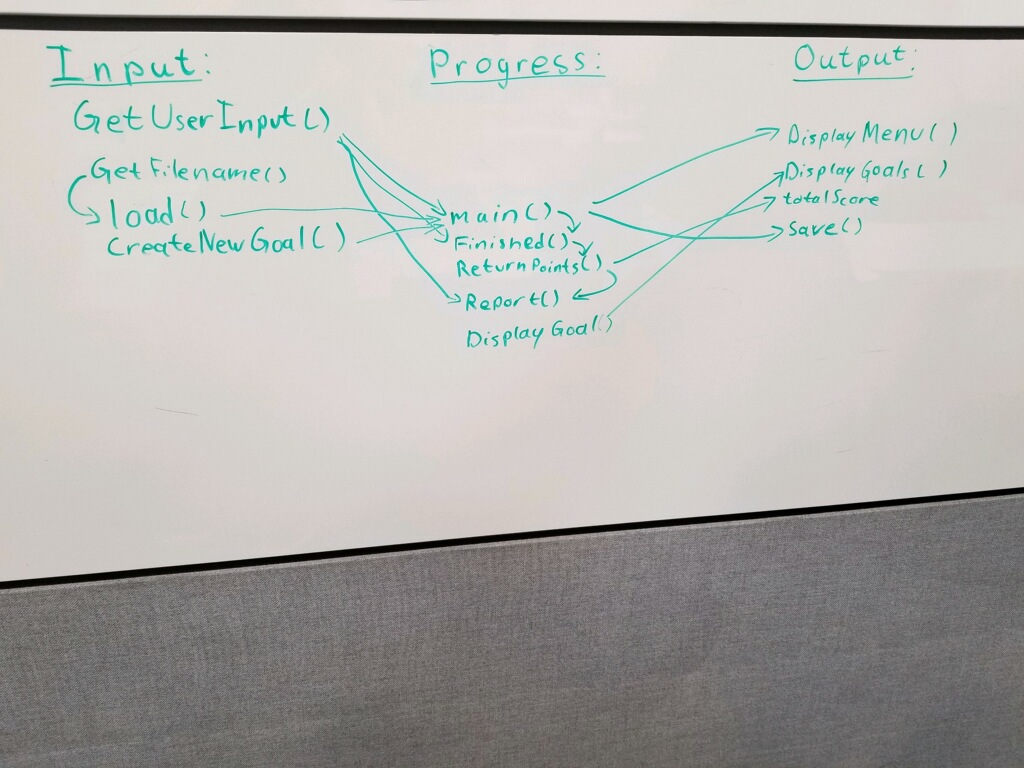 Input:
GetUserInput()
GetFilename()
load()
CreateNewGoal()
Progress:
main()
Finished()
ReturnPoints()
Report()
DisplayGoal()
Output:
DisplayMenu()
DisplayGoals()
totalScore
Save()